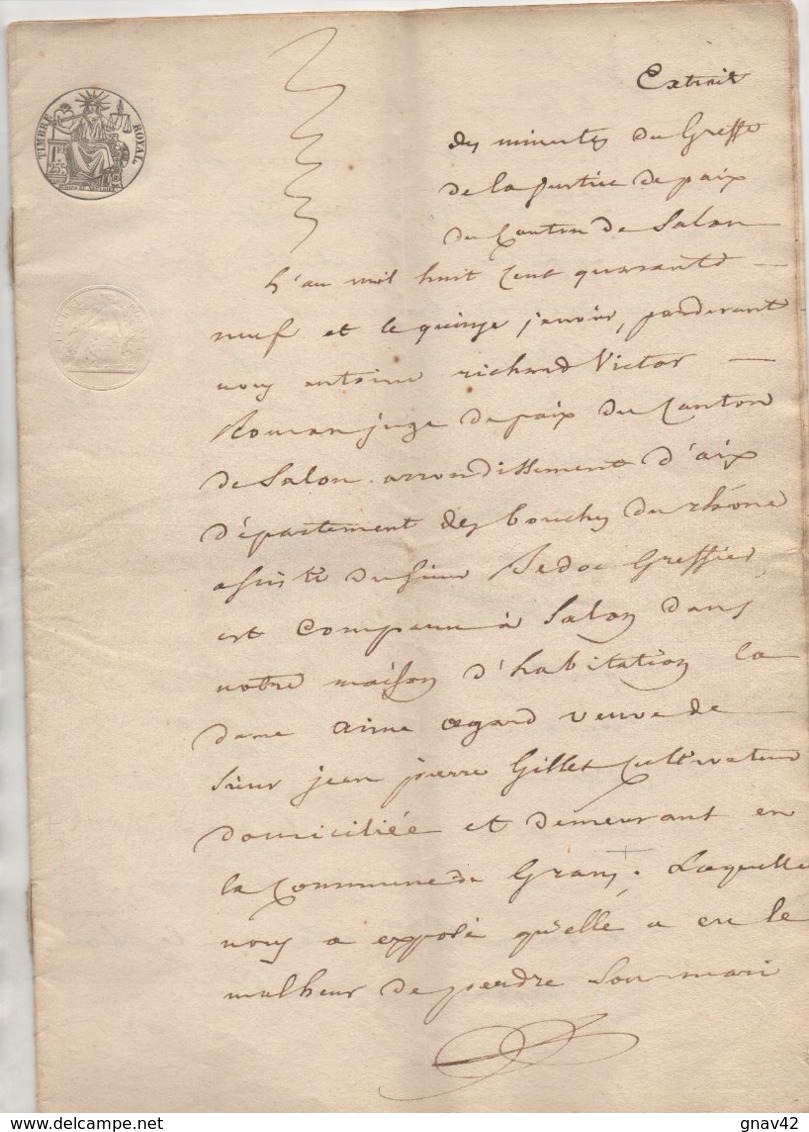 Extrait
des minutes du Greffe
de la Justice de paix
du Canton de Salon
TIMBRE ROYAL
1F.
25C.
L'an mil huit cent quarante
neuf et le quinze janvier, pardevant
nous antoine richard Victor
Roman juge de paix du Canton
de Salon arrondissement d'aix
département des bouches du rhône
assisté du sieur Sedoc Greffier
est comparu à Salon dans
notre maison d'habitation la
dame aime veuve de
sieur jean pierre Gillet cultivateur
domiciliée et demeurant en
la Commune de Grans. Laquelle
nous a exposé qu'elle a eu le
malheur de perdre son mari
www.delcampe.net
gnav42